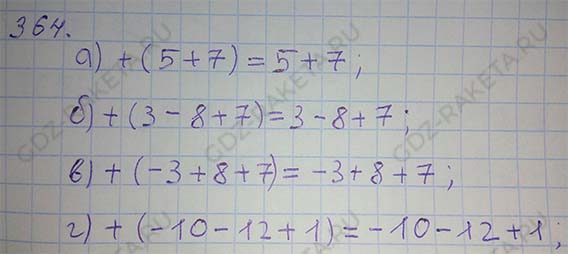 364.
а) + (5 + 7) = 5 + 7 ;
б) + (3 - 8 + 7) = 3 - 8 + 7 ;
в) + (-3 + 8 + 7) = -3 + 8 + 7 ;
г) + (-10 - 12 + 1) = -10 - 12 + 1 ;
GDZ-RAKETA.RU